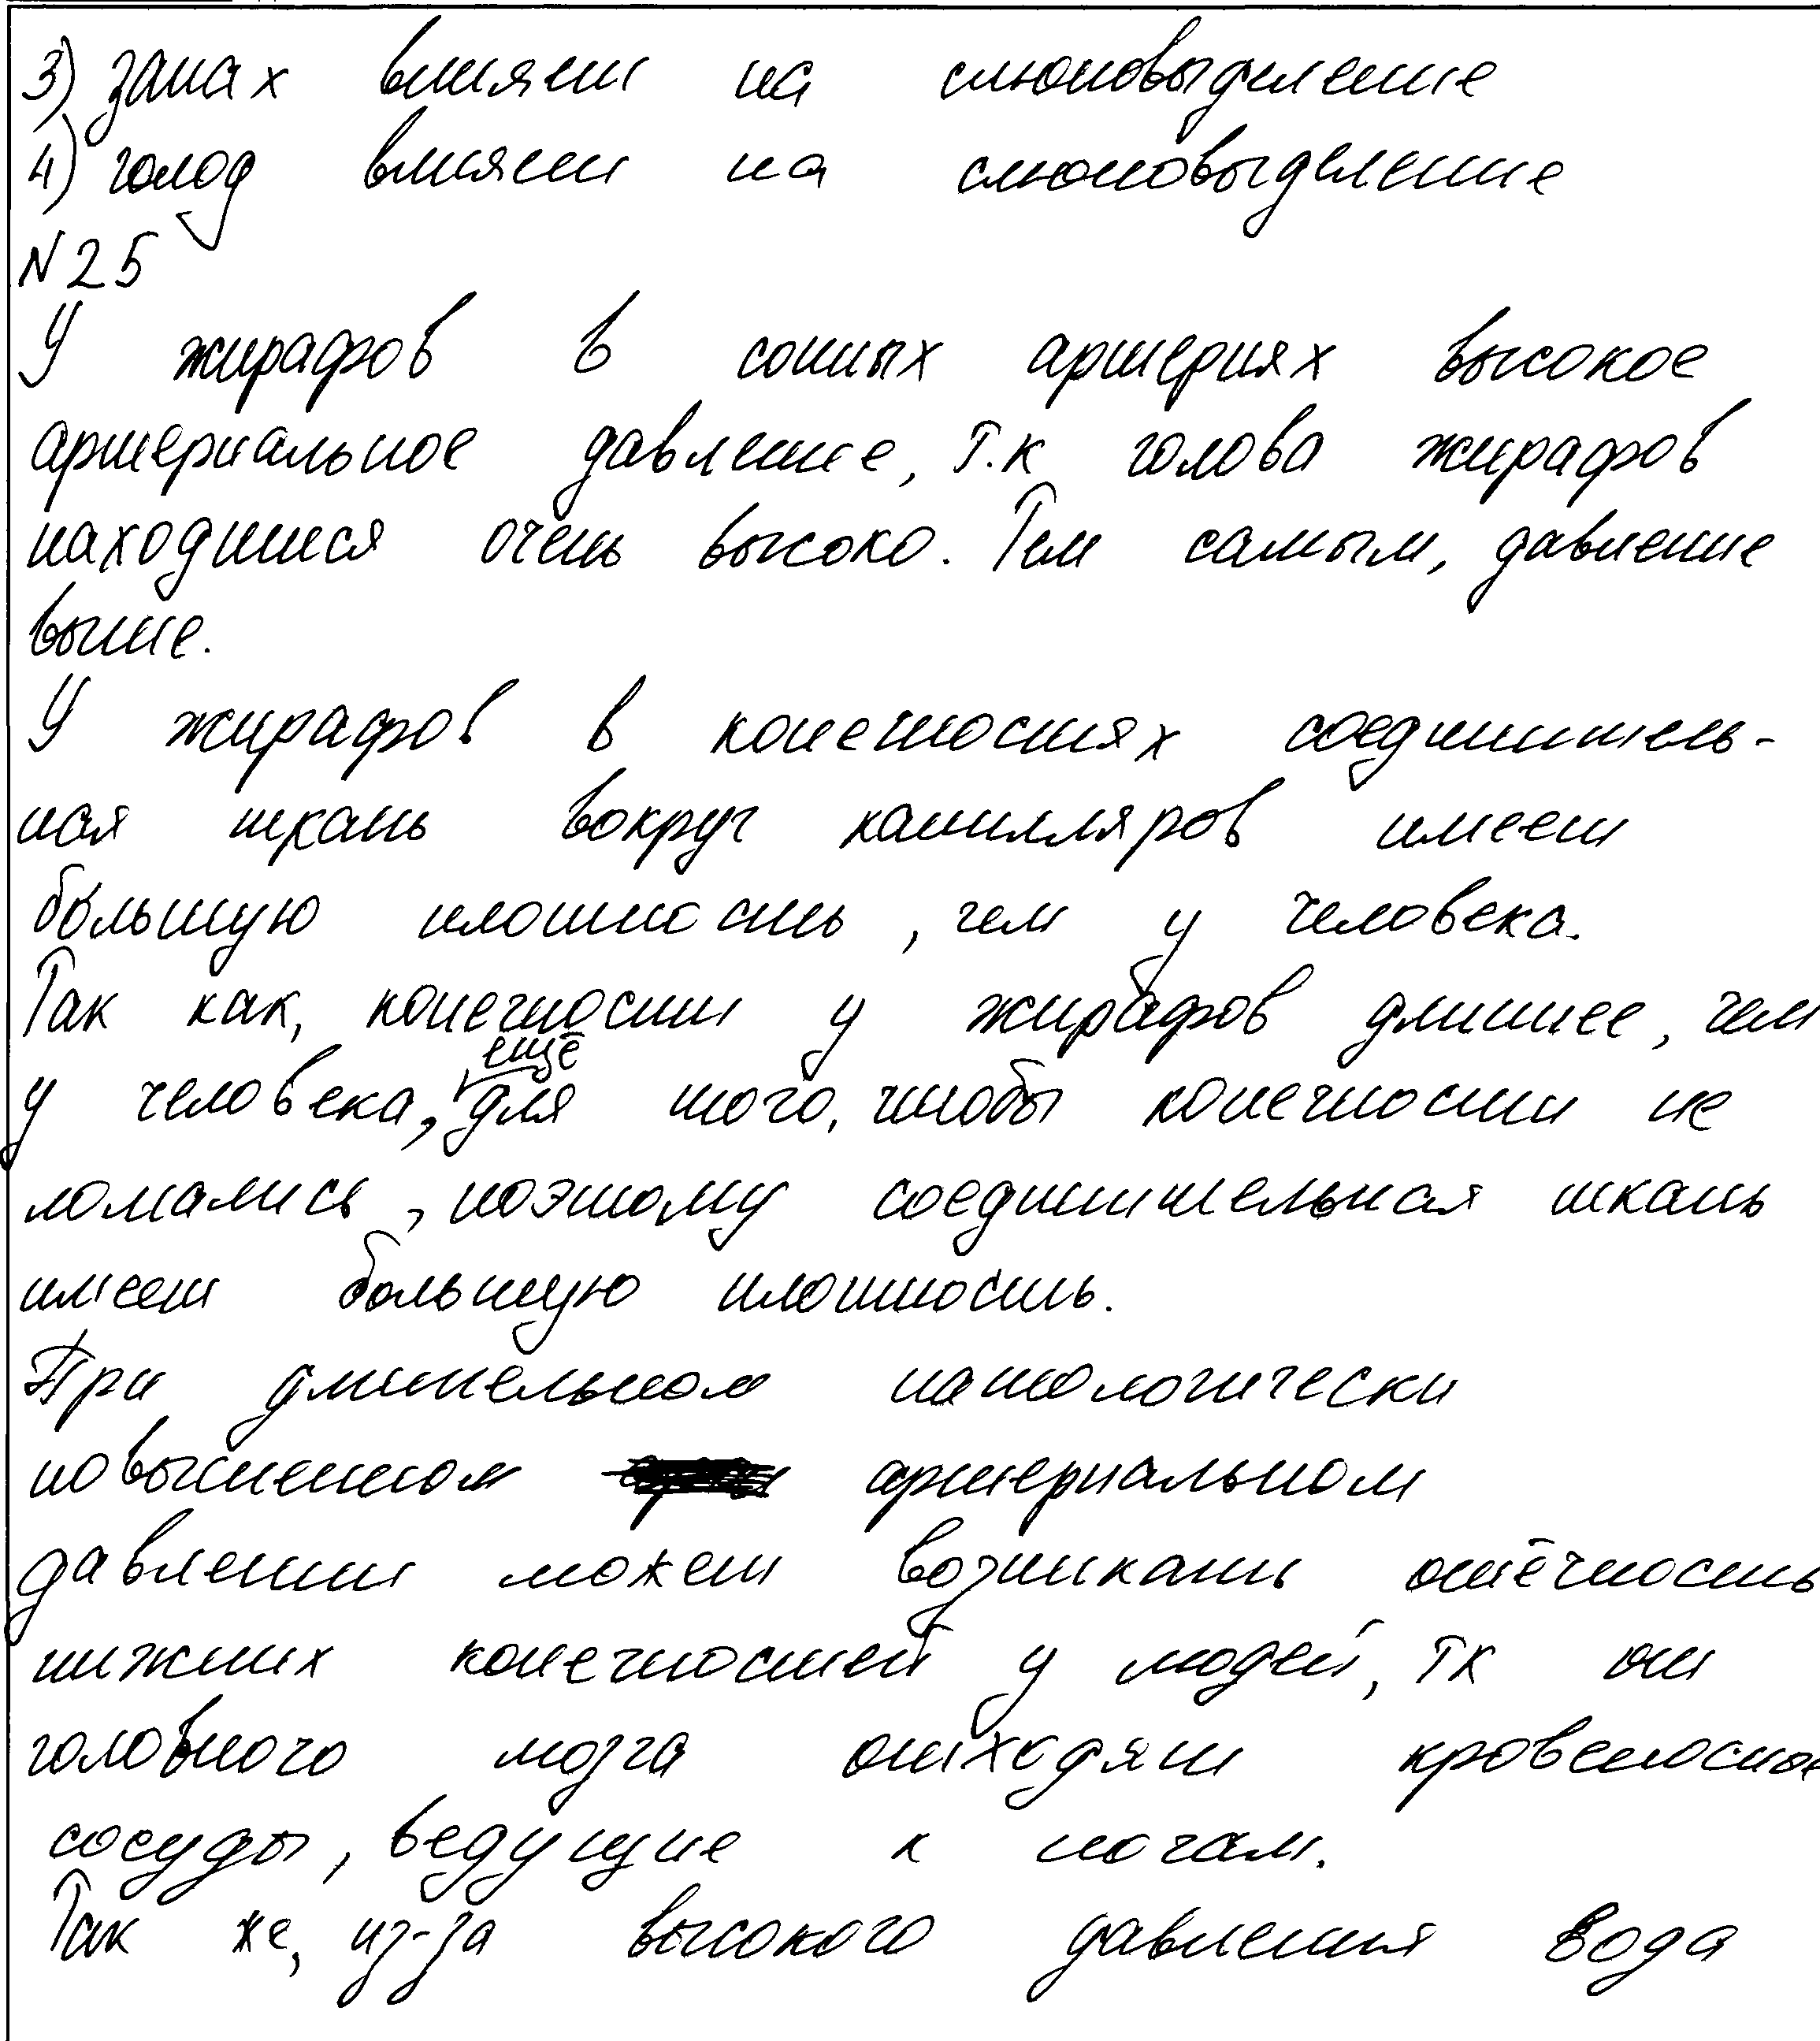 3) запах влияет на слюновыделение
4) голод влияет на слюновыделение
N 25
У жирафов в сонных артериях высокое
артериальное давление, т.к голова жирафов
находится очень высоко. Тем самым, давление
выше.
У жирафов в конечностях соединитель-
ная ткань вокруг капилляров имеет
большую плотность, чем у человека.
Так как, конечности у жирафов длиннее, чем
у человека, ещё для того, чтобы конечности не
ломались, поэтому соединительная ткань
имеет большую плотность.
При длительном патологически
повышенном артериальном
давлении может возникать отёчность
нижних конечностей у людей, тк от
головного мозга отходят кровеносные
сосуды, ведущие к ногам.
Так же, из-за высокого давления вода